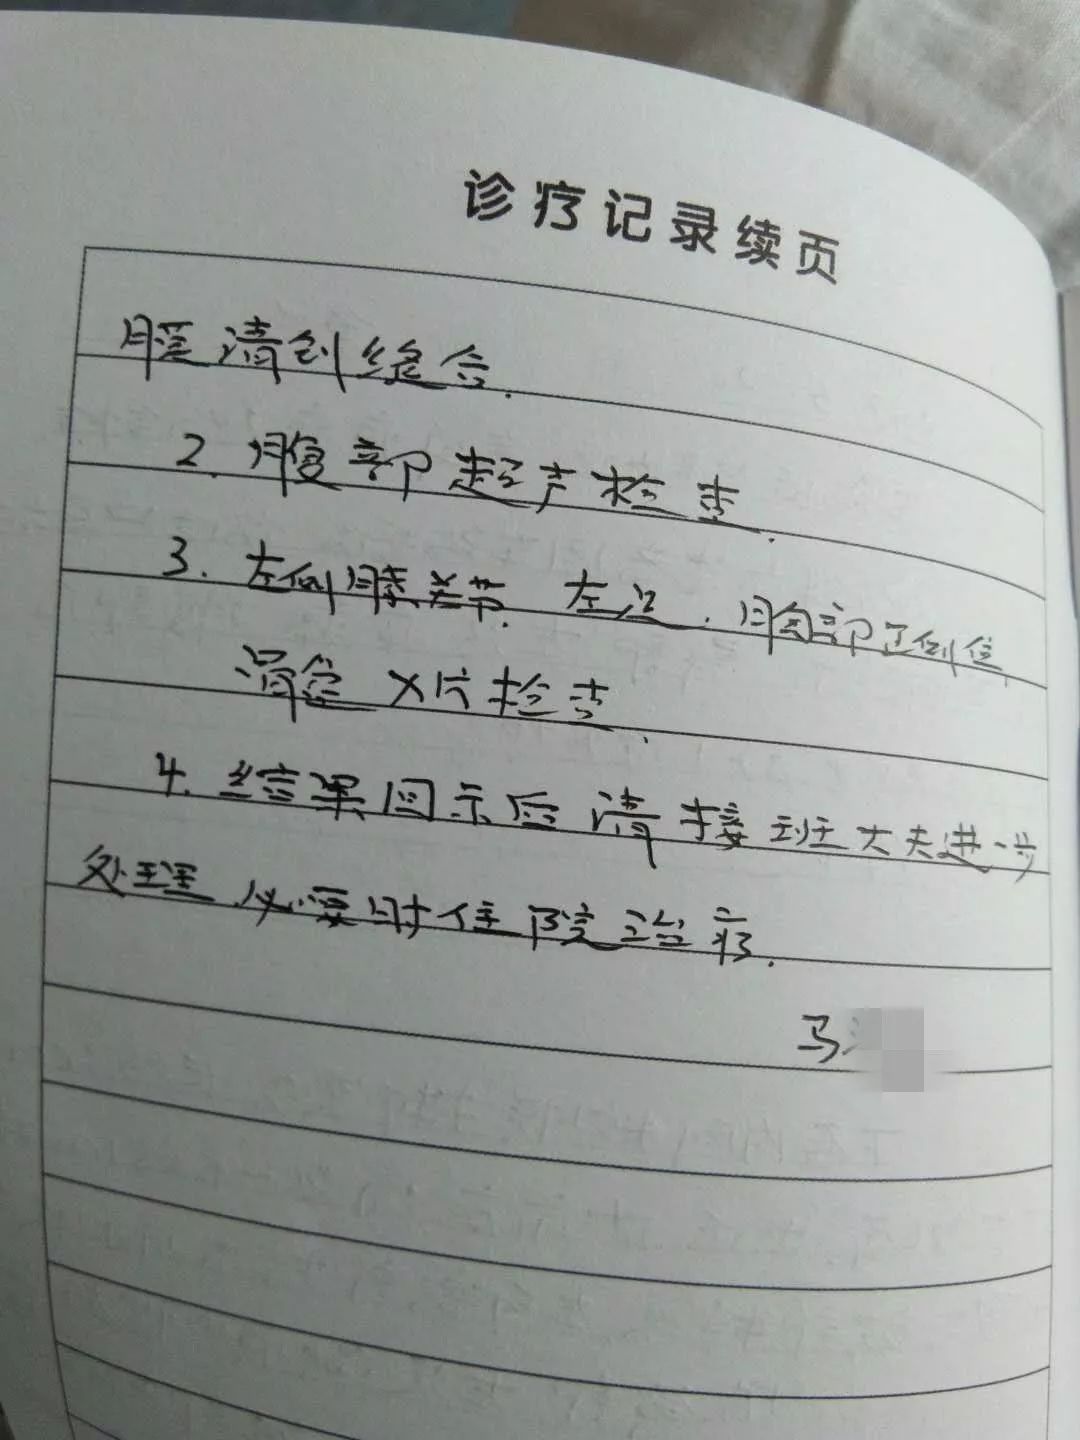 诊疗记录续页
腿清创缝合.
2. 腹部超声检查.
3. 左侧膝关节. 左足. 胸部正侧位
骨盆 X片检查.
4. 结果回示后请接班大夫进一步
处理 必要时住院治疗.
马